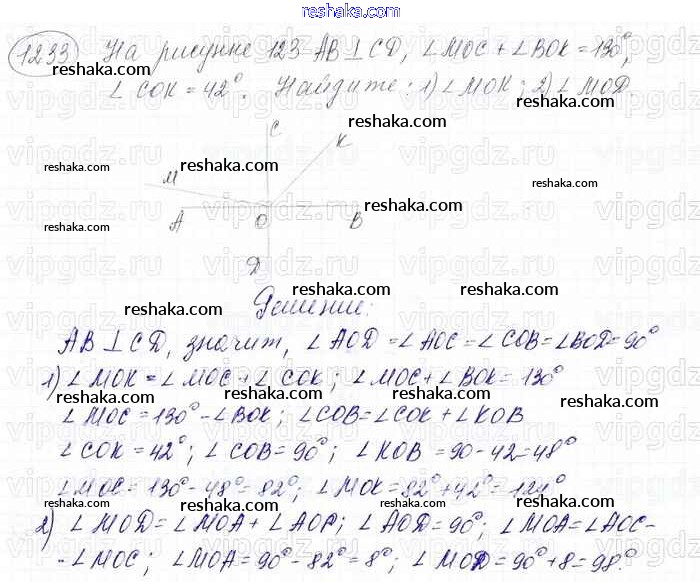 reshaka.com
1233 На рисунке 123 AB ⊥ CD, ∠MOC + ∠BOK = 130°,
∠COK = 42°. Найдите: 1) ∠MOK; 2) ∠MOD.
C
K
M
A
O
B
Д
Решение:
AB ⊥ CD, значит, ∠AOD = ∠AOC = ∠COB = ∠BOD = 90°
1) ∠MOK = ∠MOC + ∠COK; ∠MOC + ∠BOK = 130°
∠MOC = 130° - ∠BOK; ∠COB = ∠COK + ∠KOB
∠COK = 42°; ∠COB = 90°; ∠KOB = 90 - 42 = 48°
∠MOC = 130° - 48° = 82°; ∠MOK = 82° + 42° = 124°
2) ∠MOD = ∠MOA + ∠AOD; ∠AOD = 90°; ∠MOA = ∠AOC -
- ∠MOC; ∠MOA = 90° - 82° = 8°; ∠MOD = 90° + 8 = 98°.
vipgdz.ru
reshaka.com